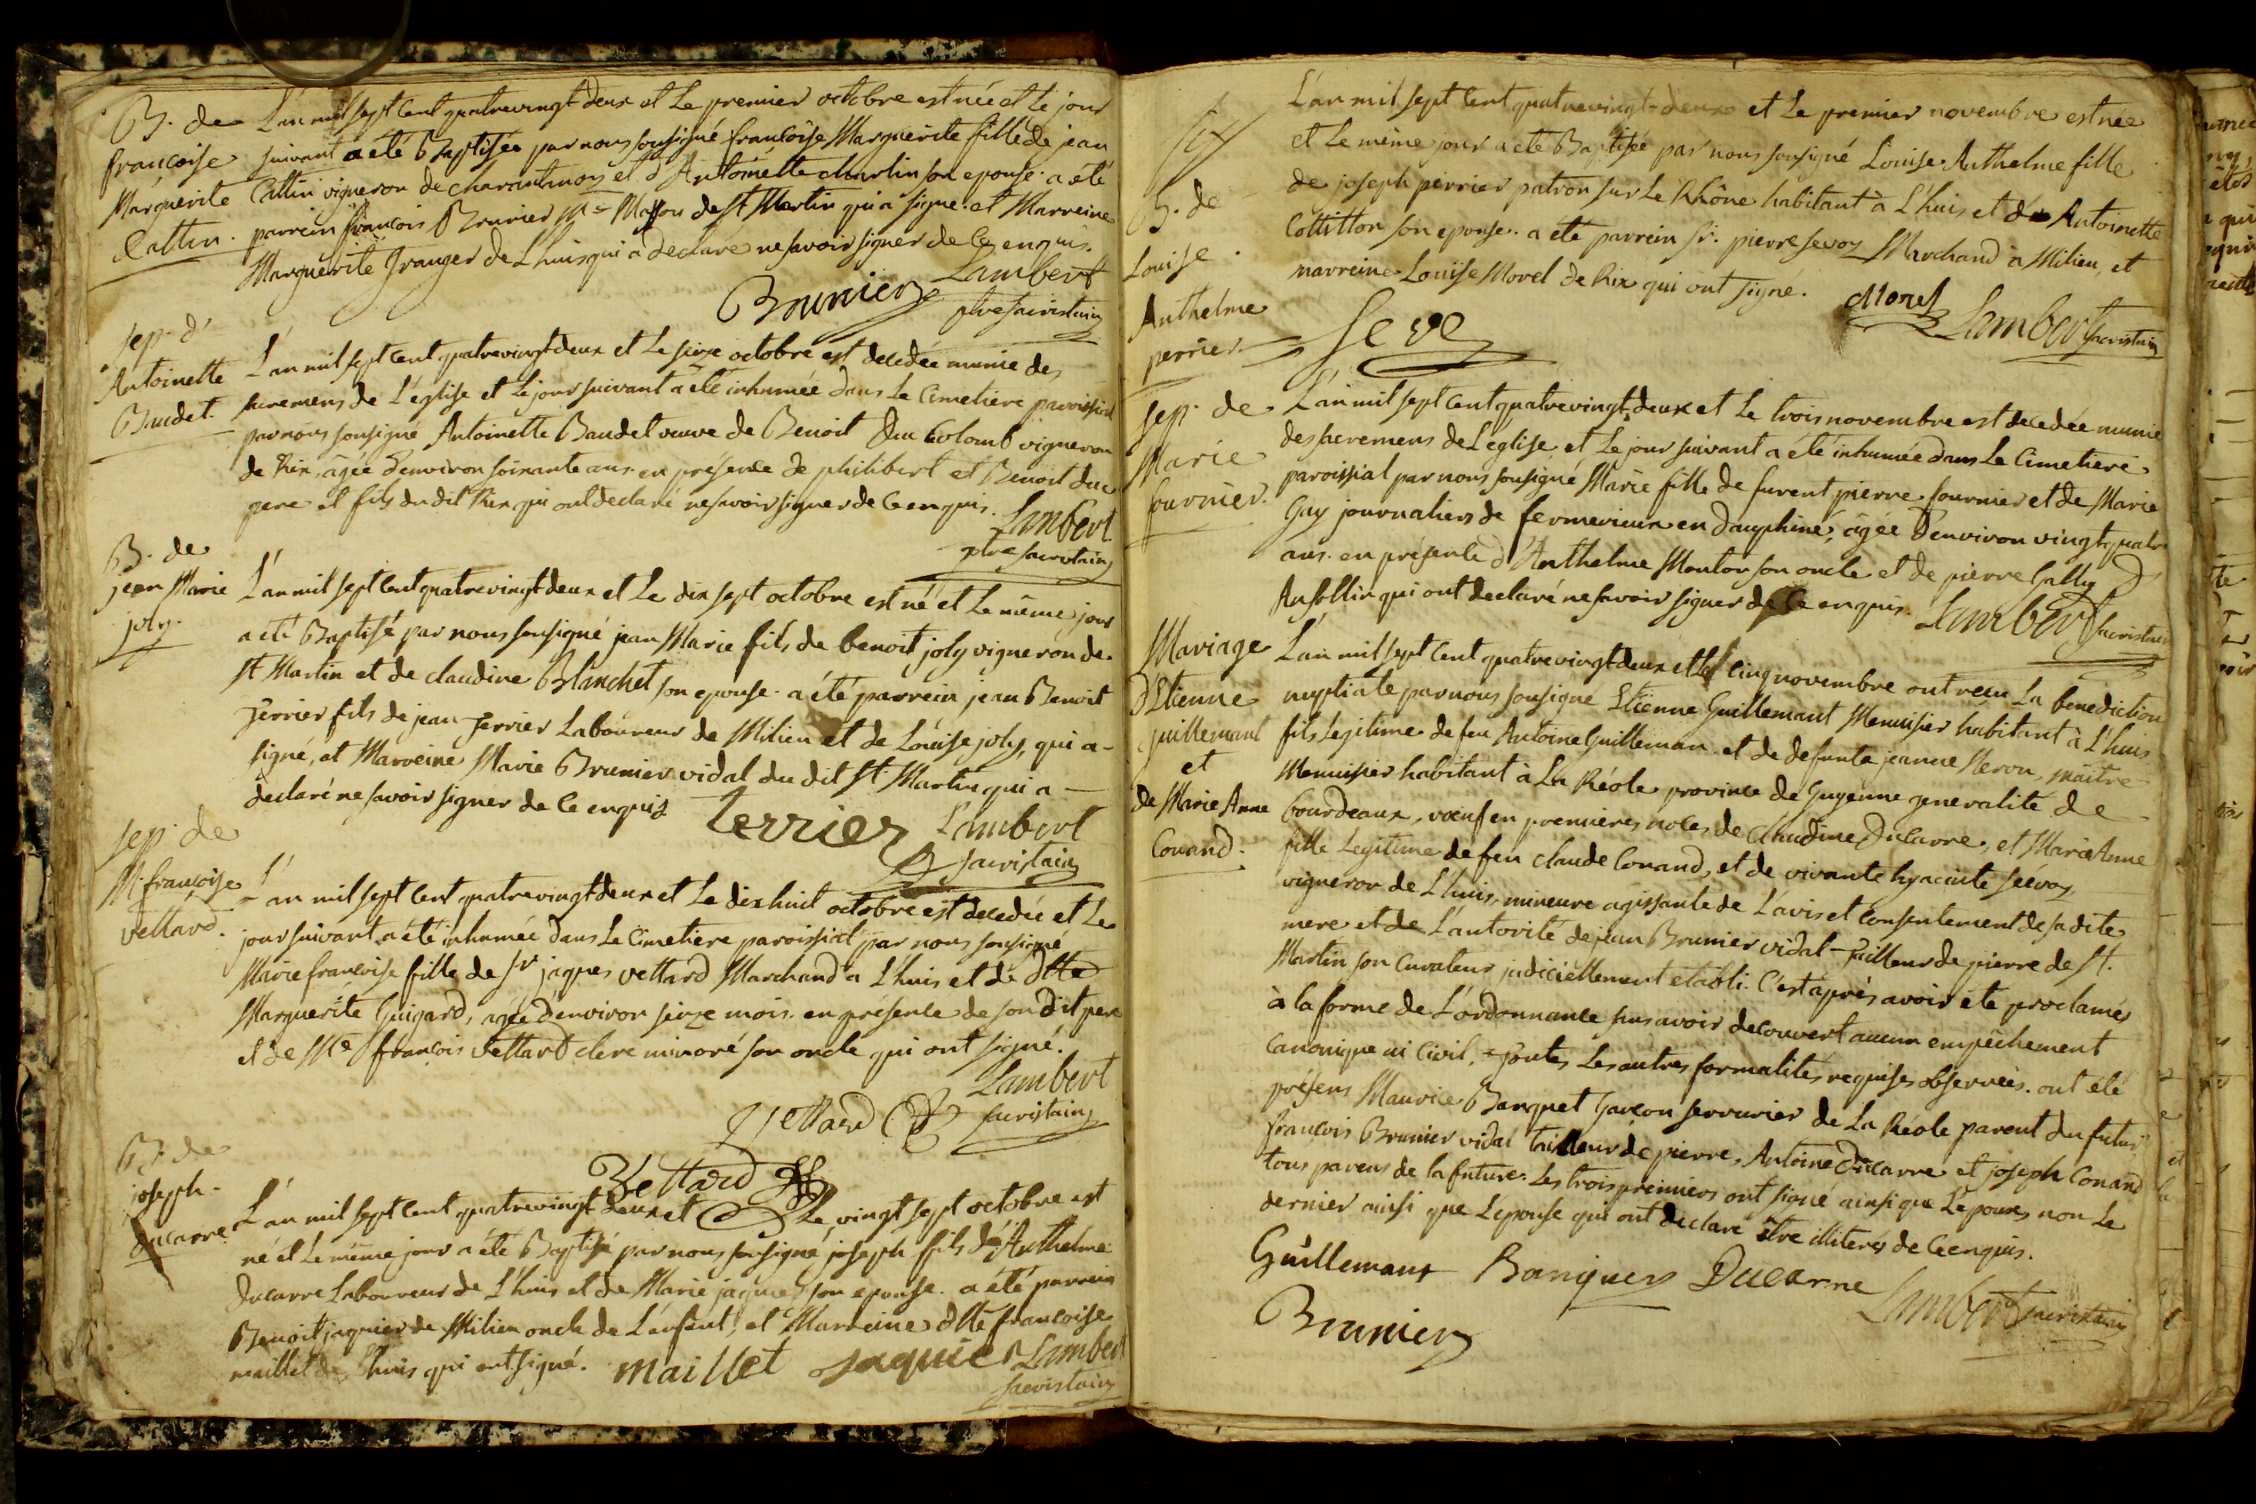 B. de
françoise
Marguerite
Cattin.
L'an mil sept cent quatrevingt deux et le premier octobre est née et le jour
suivant a été Baptisée par nous sousigné françoise Marguerite fille de jean
Cattin vigneron de charantinoy et d'Antoinette charlin son epouse. a été
parrein françois Brunier Me Masson de St Martin qui a signé. et Marreine
Marguerite Granger de L'huis qui a declaré ne savoir signer de ce enquis.
Brunier Lambert
ptre sacristain
sep. d'
Antoinette
Baudet.
L'an mil sept cent quatrevingt deux et le seize octobre est decedée munie des
sacremens de L'église et le jour suivant a été inhumée dans le cimetiere paroissial
par nous sousigné Antoinette Baudet veuve de Benoit Duc Colomb vigneron
de Rix, âgée d'environ soixante ans. en présence de philibert et Benoit duc
pere et fils du dit Rix qui ont declaré ne savoir signer de ce enquis.
Lambert
ptre sacristain
B. de
jean Marie
joly.
L'an mil sept cent quatrevingt deux et le dix sept octobre est né et le même jour
a été Baptisé par nous sousigné jean Marie fils de benoit joly vigneron de
St Martin et de claudine Blanchet son epouse. a été parrein jean Benoit
Terrier fils de jean Terrier Laboureur de Milieu et de Louise joly, qui a
signé, et Marreine Marie Brunier vidal du dit St. Martin qui a
declaré ne savoir signer de ce enquis
Terrier Lambert
sacristain
sep. de
M. françoise
vettard.
L'an mil sept cent quatrevingt deux et le dix huit octobre est decedée et le
jour suivant a été inhumée dans le cimetiere paroissial par nous sousigné
Marie françoise fille de sr jaques vettard Marchand a L'huis et de dlle
Marguerite Guigard, agée d'environ seize mois. en présence de son dit pere
et de Me françois Vettard clerc minoré son oncle qui ont signé.
Lambert
Vettard sacristain
Vettard
B. de
joseph
Ducarre
L'an mil sept cent quatrevingt deux et le vingt sept octobre est
né et le même jour a été Baptisé par nous sousigné joseph fils d'Anthelme
Ducarre Laboureur de L'huis et de Marie jaquier son epouse. a été parrein
Benoit jaquier de Milieu oncle de L'enfant, et Marreine dlle françoise
maillet de Lhuis qui ont signé. maillet Jaquier Lambert
sacristain
B. de
Louise
Anthelme
perrier.
L'an mil sept cent quatrevingt-deux et le premier novembre est née
et le même jour a été Baptisée par nous sousigné Louise Anthelme fille
de joseph perrier patron sur le Rhône habitant à L'huis et de Antoinette
Cottitton son epouse. a été parrein sr. pierre sevoz Marchand à Milieu, et
marreine Louise Morel de Rix qui ont signé.
Morel
Seve Lambert sacristain
sep. de
Marie
fournier.
L'an mil sept cent quatrevingt deux et le trois novembre est decedée munie
des sacremens de L'église, et le jour suivant a été inhumée dans le cimetiere
paroissial par nous sousigné Marie fille de furent pierre fournier et de Marie
Gay journaliers de fermerieux en dauphiné, âgée d'environ vingt quatre
ans. en présence d'Anthelme Monton son oncle et de pierre Gally
Ansollin qui ont declaré ne savoir signer de ce enquis. Lambert sacristain
Mariage
d'Etienne
Guillemant
et
de Marie Anne
Conand.
L'an mil sept cent quatrevingt deux et le cinq novembre ont reçu La benediction
nuptiale par nous sousigné Etienne Guillemant Menuisier habitant à L'huis
fils Legitime de feu Antoine Guilleman et de defunte jeanne Neron, maître
Menuisier habitant à La Réole province de Guyenne generalité de
bourdeaux, vœuf en premieres noces de claudine Ducarre, et Marie Anne
fille Legitime de feu claude Conand, et de vivante hyacinte sevoz
vigneron de L'huis, mineure agissante de L'avis et consentement de sa dite
mere et de L'autorité de jean Brunier vidal Tailleur de pierre de St.
Martin son curateur judiciellement etabli. C'est après avoir été proclamés
à la forme de L'ordonnance sans avoir decouvert aucun empêchement
canonique ni civil, Toutes Les autres formalités requises observées. ont été
présens Maurice Banquet Garçon serrurier de La Réole parent du futur
françois Brunier vidal tailleur de pierre, Antoine Ducarre et joseph Conand
tous parens de la future. Les trois premiers ont signé ainsi que L'epoux, non Le
dernier ainsi que L'epouse qui ont declaré être illiterés de ce enquis.
Guillemant Banquey Ducarre
Brunier Lambert sacristain